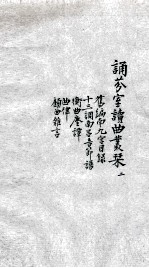 誦芬室讀曲叢刊 二
舊編南九宮目錄
十三調南呂音節譜
衡曲麈譚
曲律
顧曲雜言